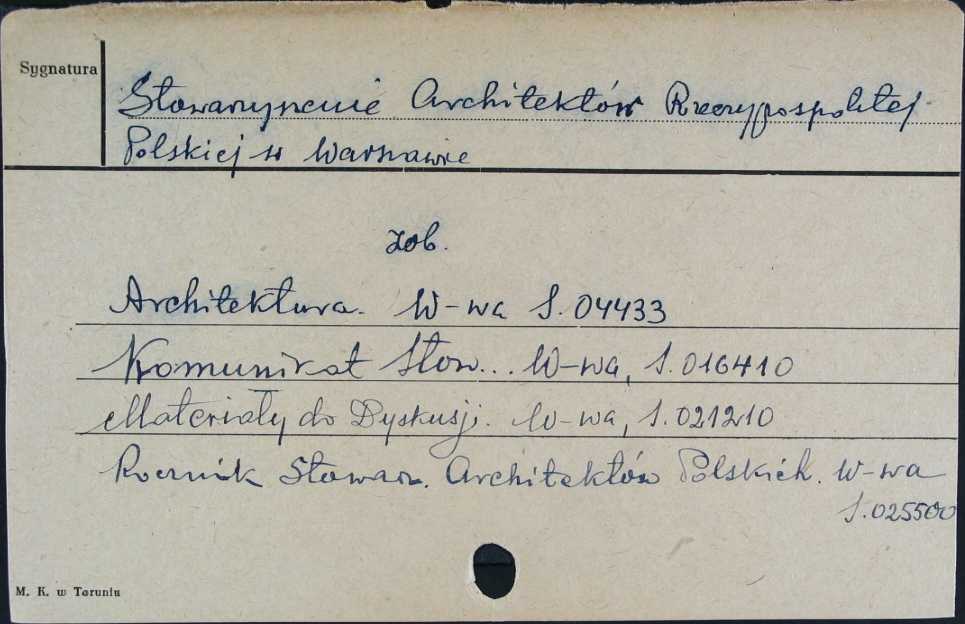 Sygnatura
Stowarzyszenie Architektów Rzeczypospolitej
Polskiej w Warszawie
zob.
Architektura. W-wa S.04433
Komunikat Stow... W-wa, S.016410
Materiały do Dyskusji. W-wa, S.021210
Rocznik Stowarz. Architektów Polskich. W-wa
S.025500
M. K. w Toruniu